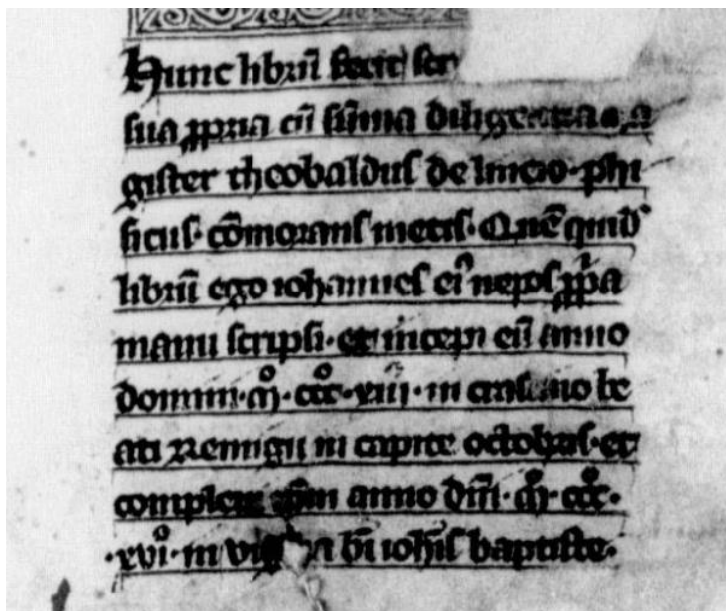 Hunc librū fecit scr
sua ꝓpria cū sūma diligentia
gister theobaldus de
sicus· cōmorans metis· Quē quid̄
librū ego iohannes ei᷒ nepos ꝓp̄a
manu scripsi· et incepi eū anno
domini· mͦ· cccͦ· in crastino be
ati Remigii in capite octobris· et
ip̄m anno dn̄i· mͦ· cccͦ·
·xviͦ· in bī ioh̄is baptiste·